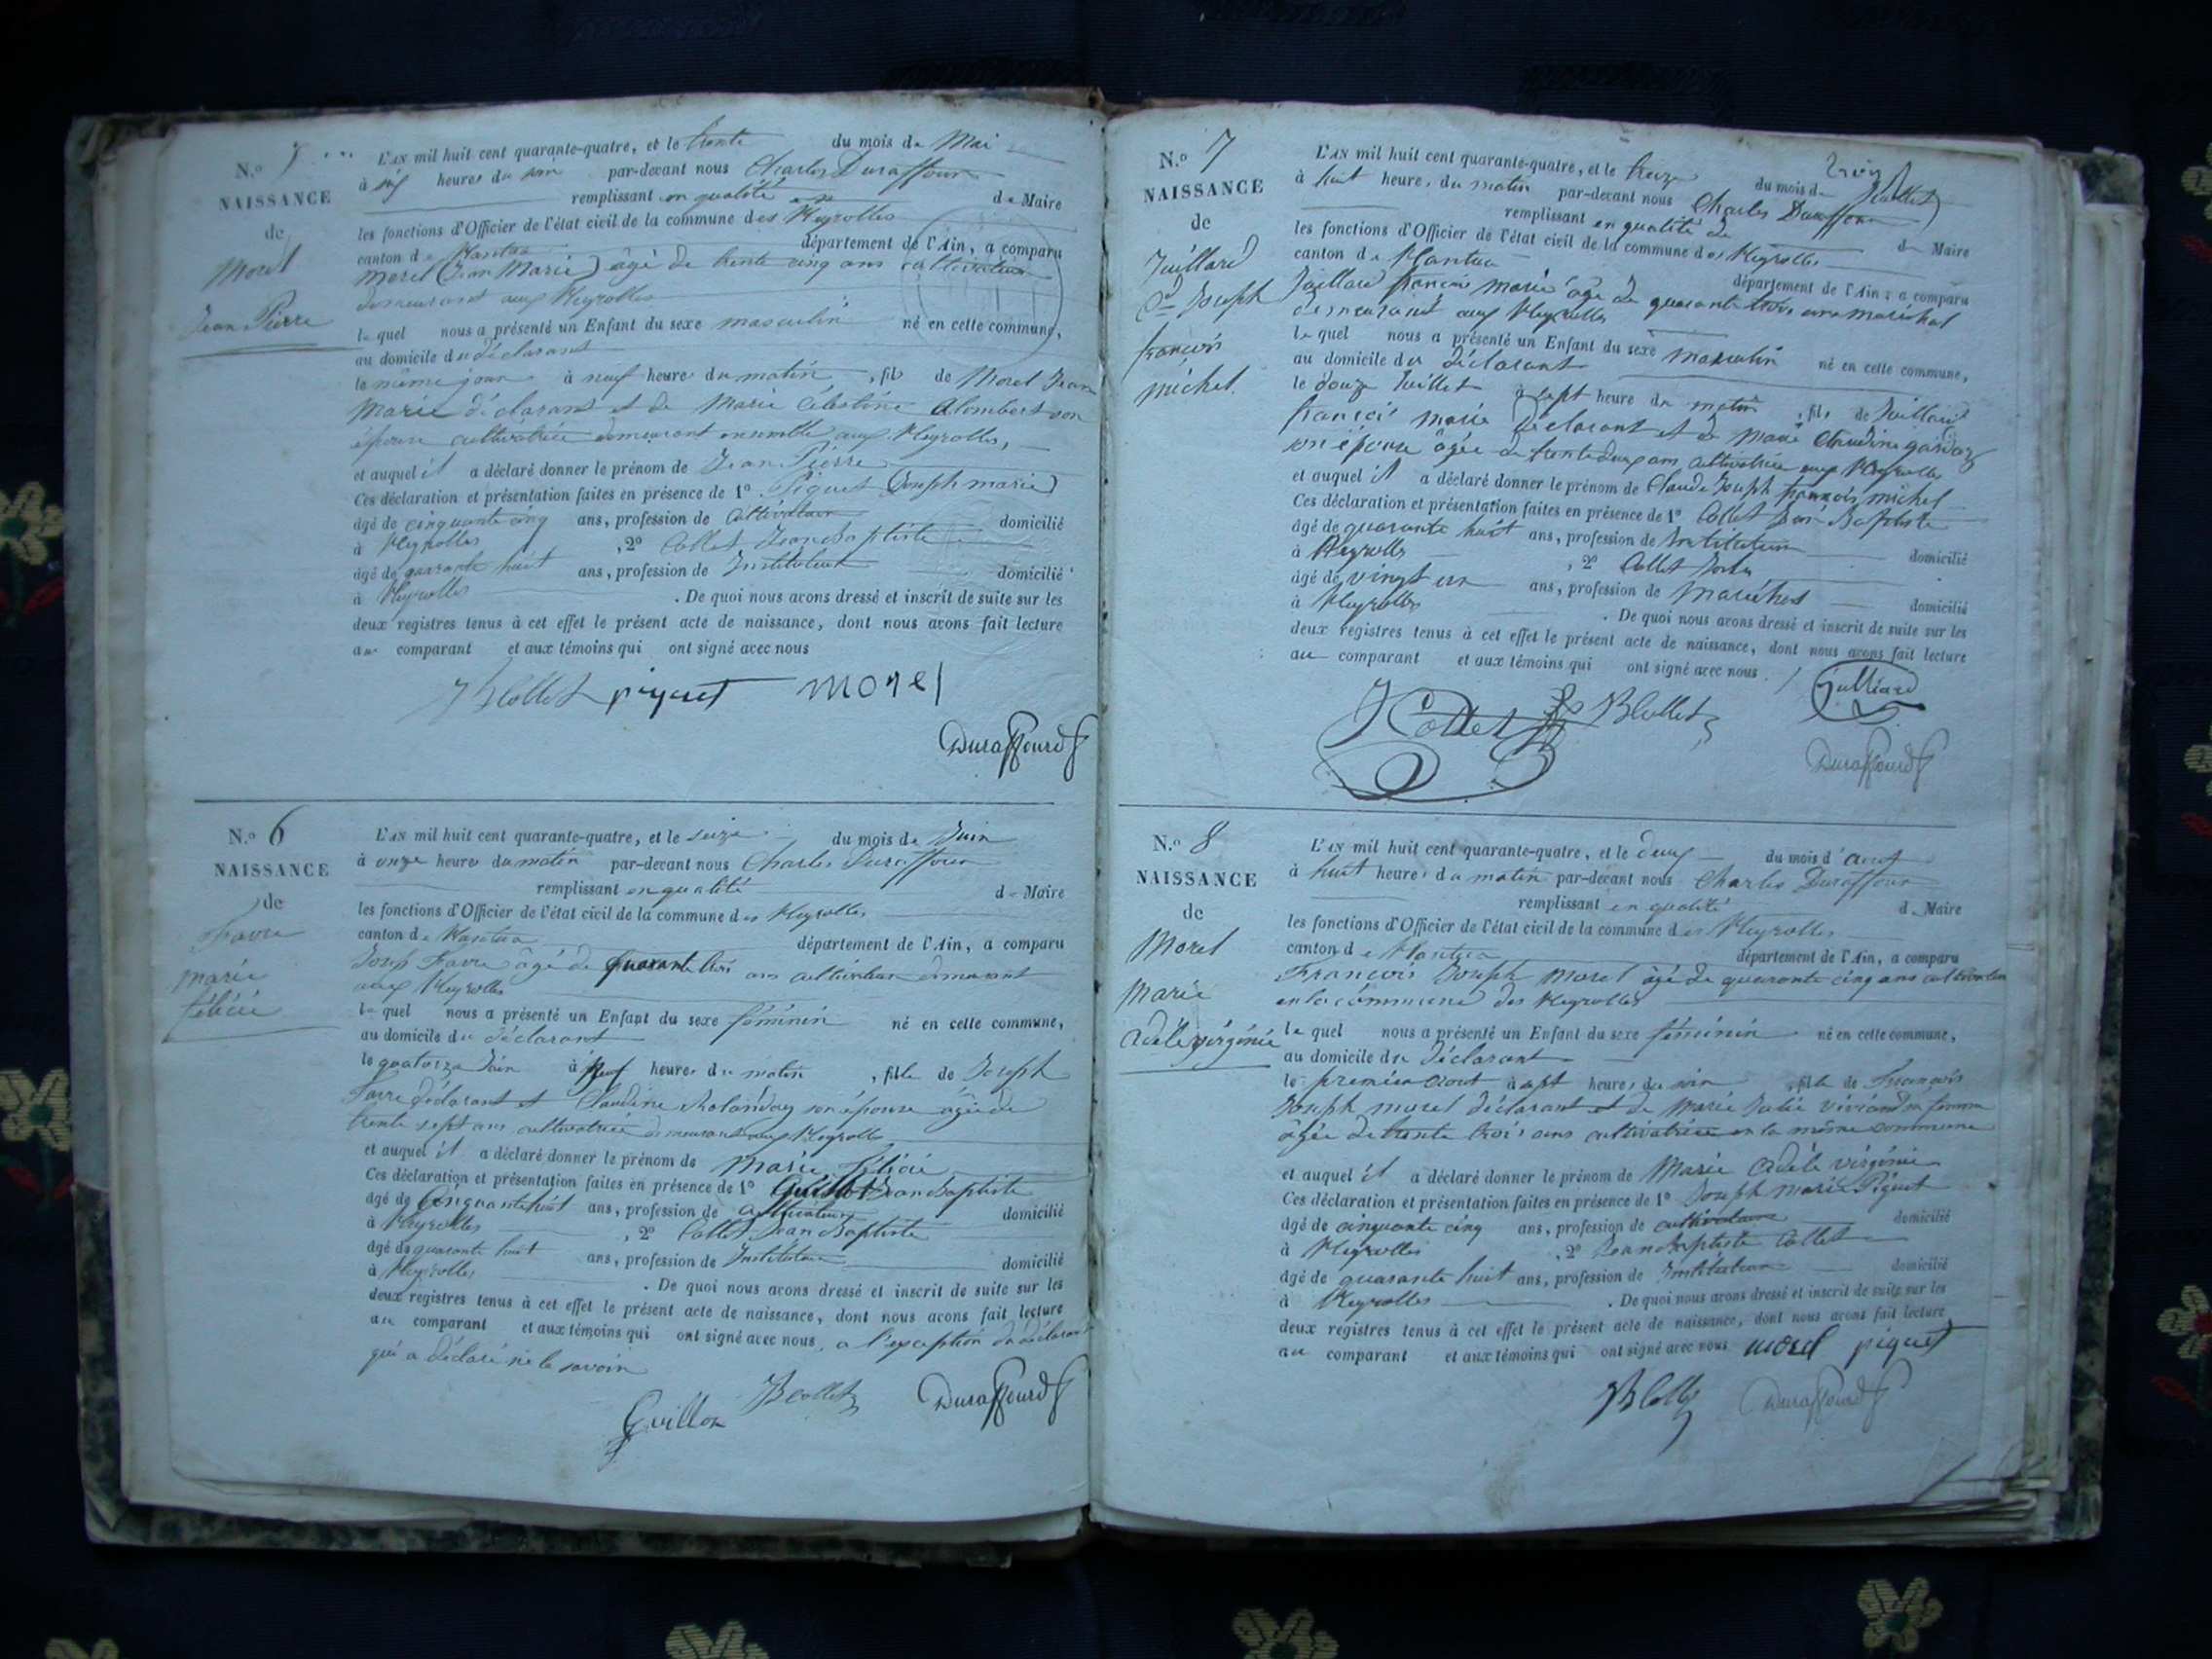 N.º 5
NAISSANCE
de
Morel
Jean Pierre
L'AN mil huit cent quarante-quatre, et le trente du mois de Mai
à six heures du soir par-devant nous Charles Duraffour
remplissant en qualité de Maire
les fonctions d'Officier de l'état civil de la commune des Neyrolles
canton de Nantua département de l'Ain, a comparu
Morel (Jean Marie) âgé de trente cinq ans cultivateur
demeurant aux Neyrolles
lequel nous a présenté un Enfant du sexe masculin né en cette commune,
au domicile du déclarant
le même jour à neuf heures du matin, fils de Morel Jean
Marie déclarant et de Marie Célestine Alombert son
épouse cultivatrice demeurant ensemble aux Neyrolles,
et auquel il a déclaré donner le prénom de Jean Pierre
Ces déclaration et présentation faites en présence de 1º Piquet (Joseph marie)
âgé de cinquante cinq ans, profession de Cultivateur domicilié
à Neyrolles, 2º Collet Jean Baptiste
âgé de quarante huit ans, profession de Instituteur domicilié
à Neyrolles. De quoi nous avons dressé et inscrit de suite sur les
deux registres tenus à cet effet le présent acte de naissance, dont nous avons fait lecture
au comparant et aux témoins qui ont signé avec nous
JBCollet piquet morel
Duraffourd
N.º 6
NAISSANCE
de
Favre
Marie
félicie
L'AN mil huit cent quarante-quatre, et le seize du mois de Juin
à onze heures du matin par-devant nous Charles Duraffour
remplissant en qualité de Maire
les fonctions d'Officier de l'état civil de la commune des Neyrolles
canton de Nantua département de l'Ain, a comparu
Josep Favre âgé de quarante trois ans cultivateur demeurant
aux Neyrolles
lequel nous a présenté un Enfant du sexe féminin né en cette commune,
au domicile du déclarant
le quatorze Juin à neuf heures du matin, fille de Joseph
Favre déclarant et Claudine son épouse âgée de
trente sept ans cultivatrice demeurant aux Neyrolles
et auquel il a déclaré donner le prénom de Marie félicie
Ces déclaration et présentation faites en présence de 1º Jean Baptiste
âgé de Cinquante huit ans, profession de cultivateur domicilié
à Neyrolles, 2º Collet Jean Baptiste
âgé de quarante huit ans, profession de Instituteur domicilié
à Neyrolles. De quoi nous avons dressé et inscrit de suite sur les
deux registres tenus à cet effet le présent acte de naissance, dont nous avons fait lecture
au comparant et aux témoins qui ont signé avec nous, a l'exception du déclarant
qui a déclaré ne le savoir
Guillon JBCollet Duraffourd
N.º 7
NAISSANCE
de
Juillard
Cde Joseph
françois
michel
L'AN mil huit cent quarante-quatre, et le treize du mois de Juillet
à huit heures du matin par-devant nous Charles Duraffour
remplissant en qualité de Maire
les fonctions d'Officier de l'état civil de la commune des Neyrolles
canton de Nantua département de l'Ain, a comparu
Juillard françois marie âgé de quarante trois ans maréchal
demeurant aux Neyrolles
lequel nous a présenté un Enfant du sexe masculin né en cette commune,
au domicile du déclarant
le douze Juillet à sept heure du matin, fils de Juillard
françois marie déclarant et de marie Claudine
son épouse âgée de trente deux ans cultivatrice aux Neyrolles
et auquel il a déclaré donner le prénom de Claude Joseph françois michel
Ces déclaration et présentation faites en présence de 1º Collet Jean Baptiste
âgé de quarante huit ans, profession de Instituteur domicilié
à Neyrolles, 2º Collet
âgé de vingt un ans, profession de Maréchal domicilié
à Neyrolles. De quoi nous avons dressé et inscrit de suite sur les
deux registres tenus à cet effet le présent acte de naissance, dont nous avons fait lecture
au comparant et aux témoins qui ont signé avec nous
Collet JBCollet Julliard
Duraffourd
N.º 8
NAISSANCE
de
Morel
Marie
adèle virginie
L'AN mil huit cent quarante-quatre, et le deux du mois d'août
à huit heures du matin par-devant nous Charles Duraffour
remplissant en qualité de Maire
les fonctions d'Officier de l'état civil de la commune des Neyrolles
canton de Nantua département de l'Ain, a comparu
François Joseph Morel âgé de quarante cinq ans cultivateur
en la commune des Neyrolles
lequel nous a présenté un Enfant du sexe féminin né en cette commune,
au domicile du déclarant
le premier août à sept heures du soir, fille de François
Joseph morel déclarant et de Marie Julie sa femme
âgée de trente trois ans cultivatrice en la même commune
et auquel il a déclaré donner le prénom de Marie adèle virginie
Ces déclaration et présentation faites en présence de 1º Joseph Marie Piquet
âgé de cinquante cinq ans, profession de cultivateur domicilié
à Neyrolles, 2º Jean Baptiste Collet
âgé de quarante huit ans, profession de Instituteur domicilié
à Neyrolles. De quoi nous avons dressé et inscrit de suite sur les
deux registres tenus à cet effet le présent acte de naissance, dont nous avons fait lecture
au comparant et aux témoins qui ont signé avec nous morel piquet
JBCollet Duraffourd